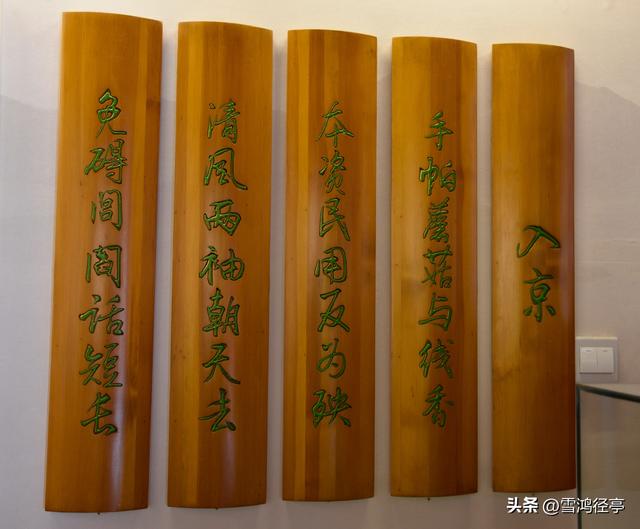 入京
手帕蘑菇与线香
本资民用反为殃
清风两袖朝天去
免碍闾阎话短长
头条 @雪鸿径亭